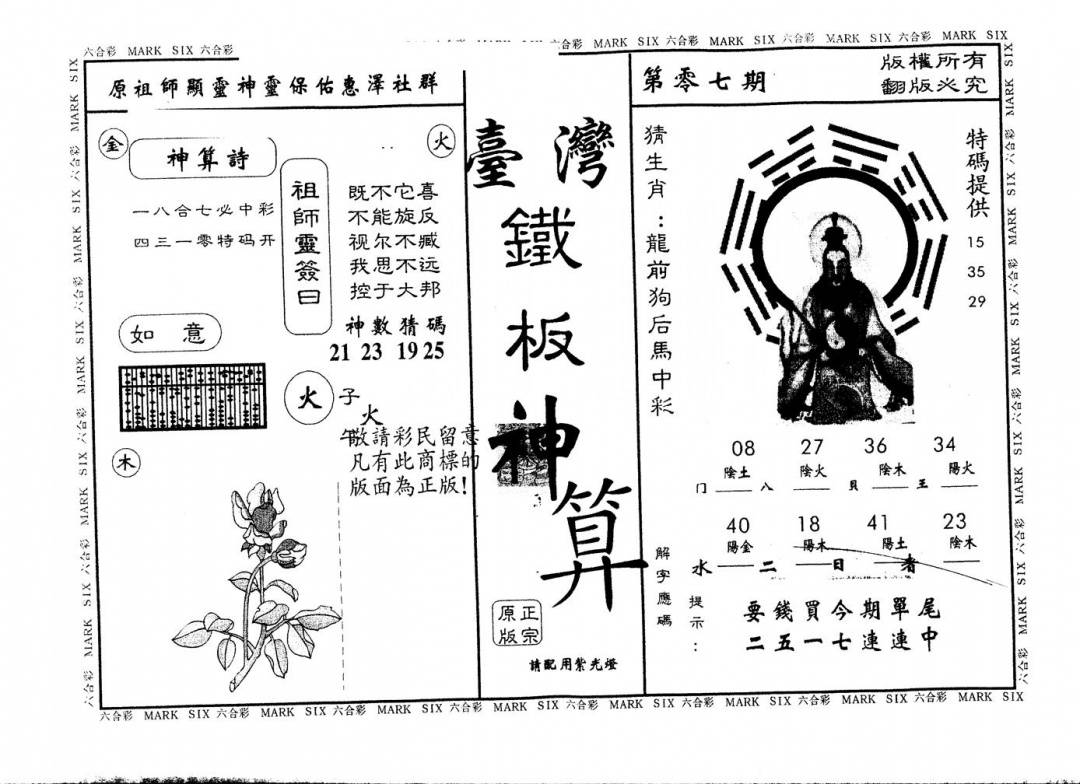 六合彩 MARK SIX 六合彩
六合彩 MARK SIX 六合彩 MARK SIX 六合彩 MARK SIX 六合彩 MARK SIX
原祖師顯靈神靈保佑惠澤社群
金
火
神算詩
一八合七必中彩
四三一零特码开
祖師靈簽曰
既不它喜
不能旋反
视尔不臧
我思不远
控于大邦
神數猜碼
21 23 19 25
如意
火
子
火
午
敬請彩民留意
凡有此商標的
版面為正版!
木
臺灣
鐵
板
神
算
正宗
原版
請配用紫光燈
第零七期
版權所有
翻版必究
猜生肖:龍前狗后馬中彩
特碼提供
15
35
29
08 27 36 34
陰土 陰火 陰木 陽火
门 八 貝 王
40 18 41 23
陽金 陽木 陽土 陰木
水 二 日 者
解字應碼
提示:
要錢買今期單尾
二五一七連連中
MARK SIX 六合彩 MARK SIX 六合彩 MARK SIX 六合彩 MARK SIX 六合彩 MARK SIX 六合彩
MARK SIX 六合彩 MARK SIX 六合彩 MARK SIX 六合彩 MARK SIX 六合彩 MARK SIX 六合彩
六合彩 MARK SIX 六合彩 MARK SIX 六合彩 MARK SIX 六合彩 MARK SIX 六合彩 MARK SIX 六合彩 MARK SIX 六合彩 MARK SIX